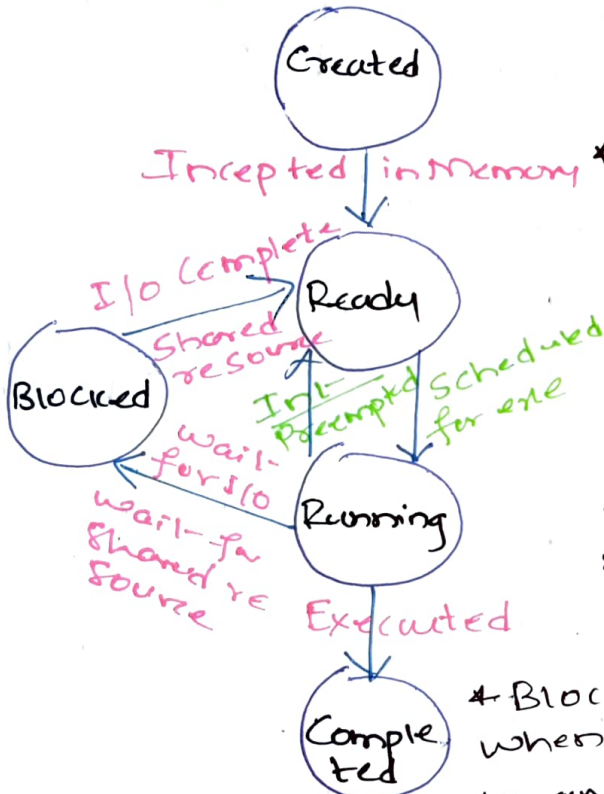 Created
Incepted in Memory *
I/O Complete
Ready
Shared
resource
Blocked
Int
Preempted
Scheduled
for exe
wait
for I/O
Running
wait for
Shared re
source
Executed
Comple
ted
* Bloc
when